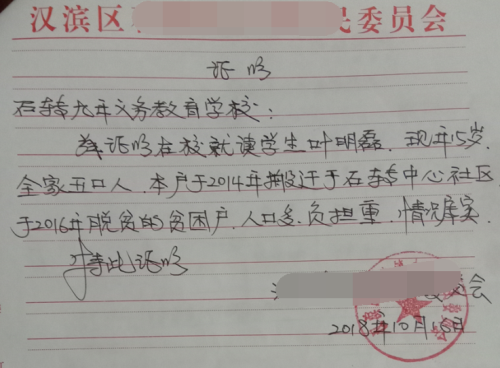 汉滨区 民委员会
证明
石转九年义务教育学校:
兹证明在校就读学生叶明磊.现年15岁.
全家五口人.本户于2014年搬迁于石转中心社区
于2016年脱贫的贫困户.人口多.负担重.情况属实.
特此证明
委会
2018年10月15日